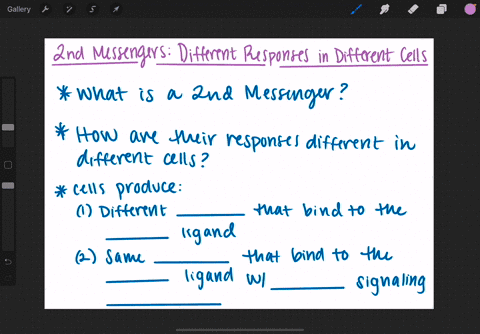 Gallery
2nd Messengers: Different Responses in Different Cells
* What is a 2nd Messenger?
* How are their responses different in
different cells?
* Cells produce:
(1) Different ______ that bind to the
______ ligand
(2) Same ______ that bind to the
______ ligand w/ ______ signaling
______